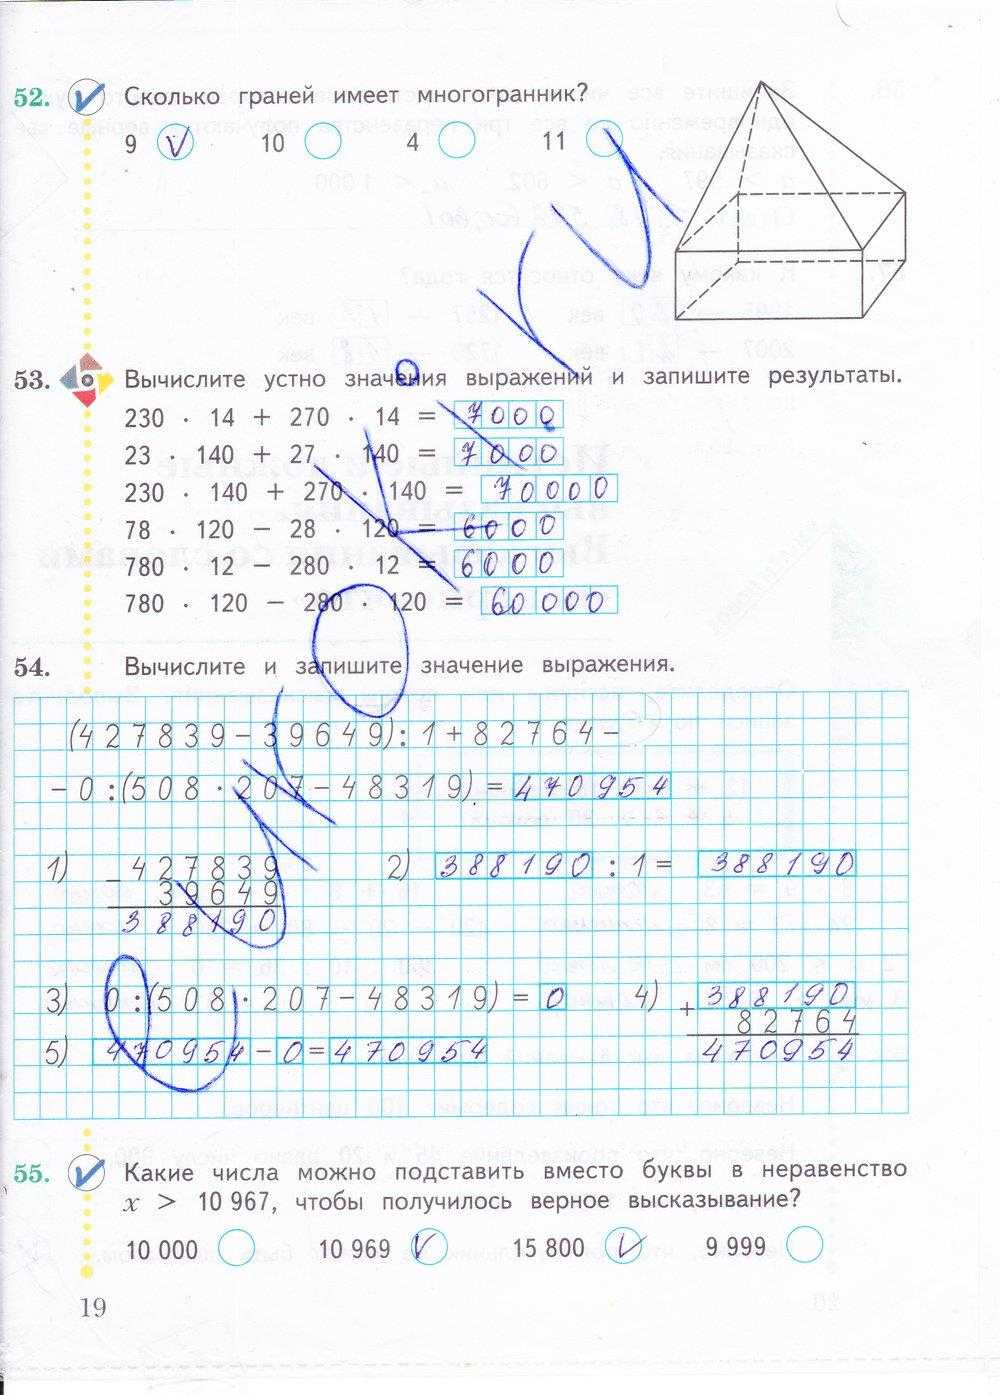 52. Сколько граней имеет многогранник?
9 V 10 4 11
53. Вычислите устно значения выражений и запишите результаты.
230 · 14 + 270 · 14 = 7000
23 · 140 + 27 · 140 = 7000
230 · 140 + 270 · 140 = 70000
78 · 120 − 28 · 120 = 6000
780 · 12 − 280 · 12 = 6000
780 · 120 − 280 · 120 = 60000
54. Вычислите и запишите значение выражения.
(427839−39649):1+82764−
−0:(508·207−48319)=470954
1) −427839 2) 388190 : 1 = 388190
39649
388190
3) 0:(508·207−48319)=0 4) +388190
82764
5) 470954−0=470954 470954
55. Какие числа можно подставить вместо буквы в неравенство
x > 10 967, чтобы получилось верное высказывание?
10 000 10 969 V 15 800 V 9 999
19